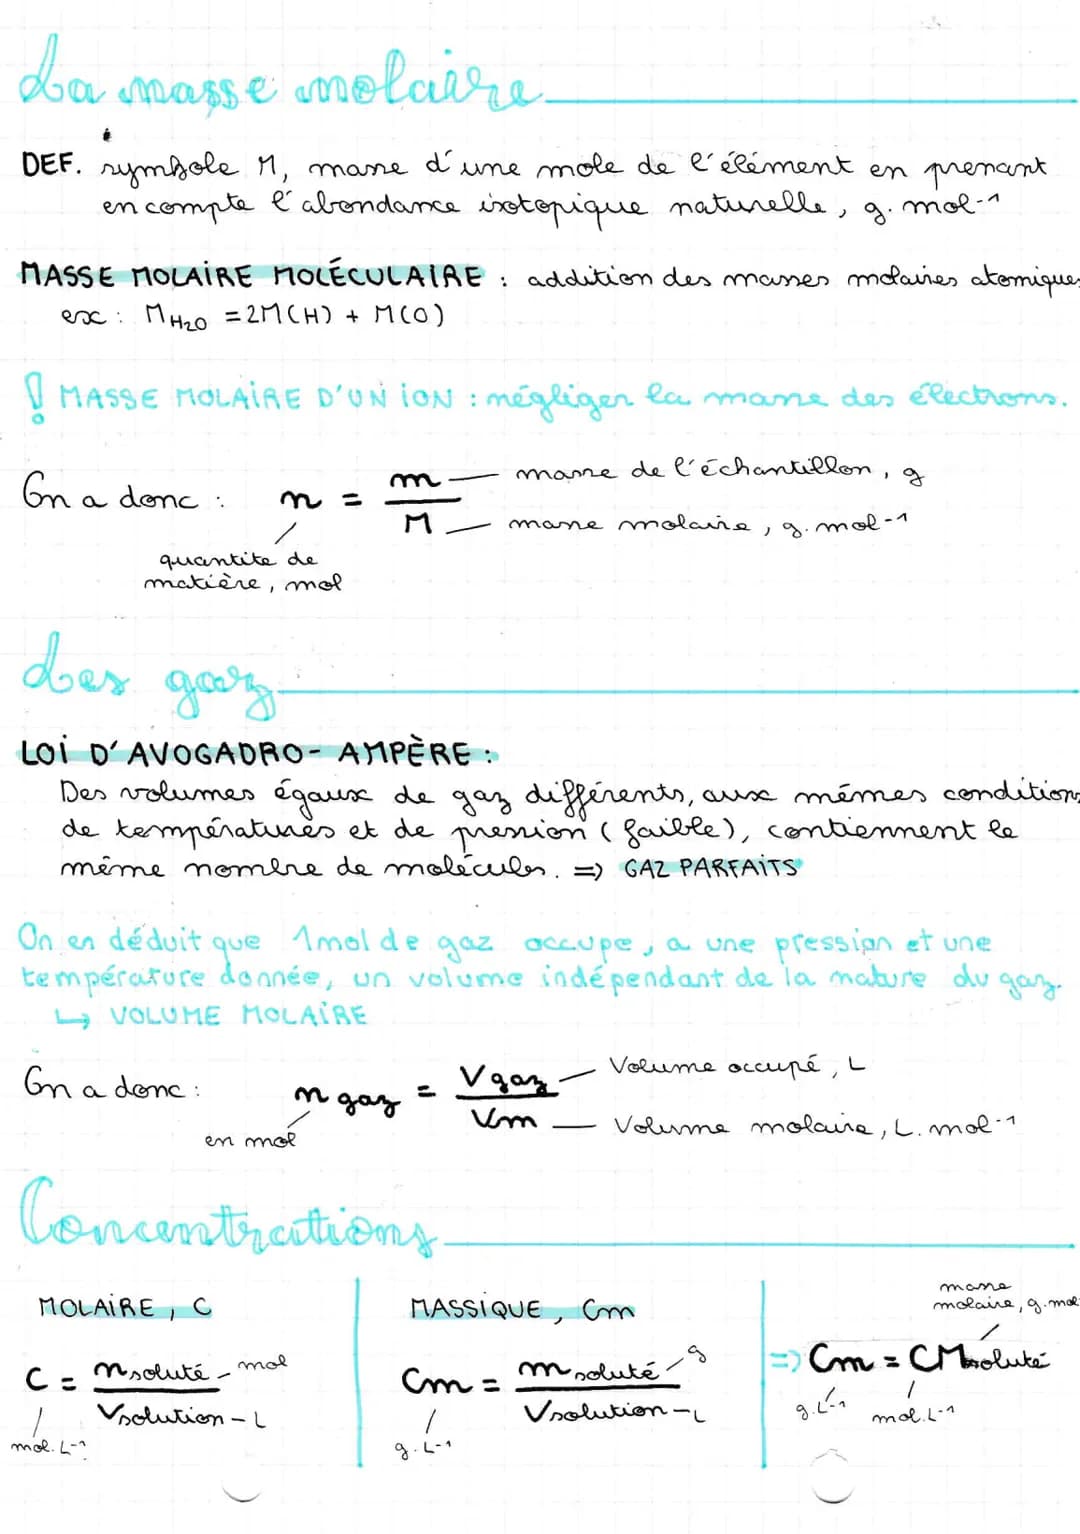 La masse molaire
DEF. symbole M, masse d'une mole de l'élément en prenant
en compte l'abondance isotopique naturelle, g. mol-1
MASSE MOLAIRE MOLÉCULAIRE : addition des masses molaires atomiques
ex : MH2O = 2M(H) + M(O)
! MASSE MOLAIRE D'UN ION : négliger la masse des électrons.
masse de l'échantillon, g
On a donc : n = m/M
masse molaire, g. mol-1
quantite de
matière, mol
Les gaz
LOI D'AVOGADRO- AMPÈRE :
Des volumes égaux de gaz différents, aux mêmes conditions
de températures et de pression (faible), contiennent le
même nombre de molécules. => GAZ PARFAITS
On en déduit que 1mol de gaz occupe, a une pression et une
température donnée, un volume indépendant de la nature du gaz.
↳ VOLUME MOLAIRE
Volume occupé, L
On a donc : n gaz = V gaz/Vm
en mol
Volume molaire, L. mol-1
Concentrations
MOLAIRE, C
C = nsoluté/Vsolution
mol
L
mol. L-1
MASSIQUE, Cm
Cm = msoluté/Vsolution
g
L
g. L-1
masse
molaire, g. mol-
=> Cm = CMsoluté
g. L-1
mol. L-1